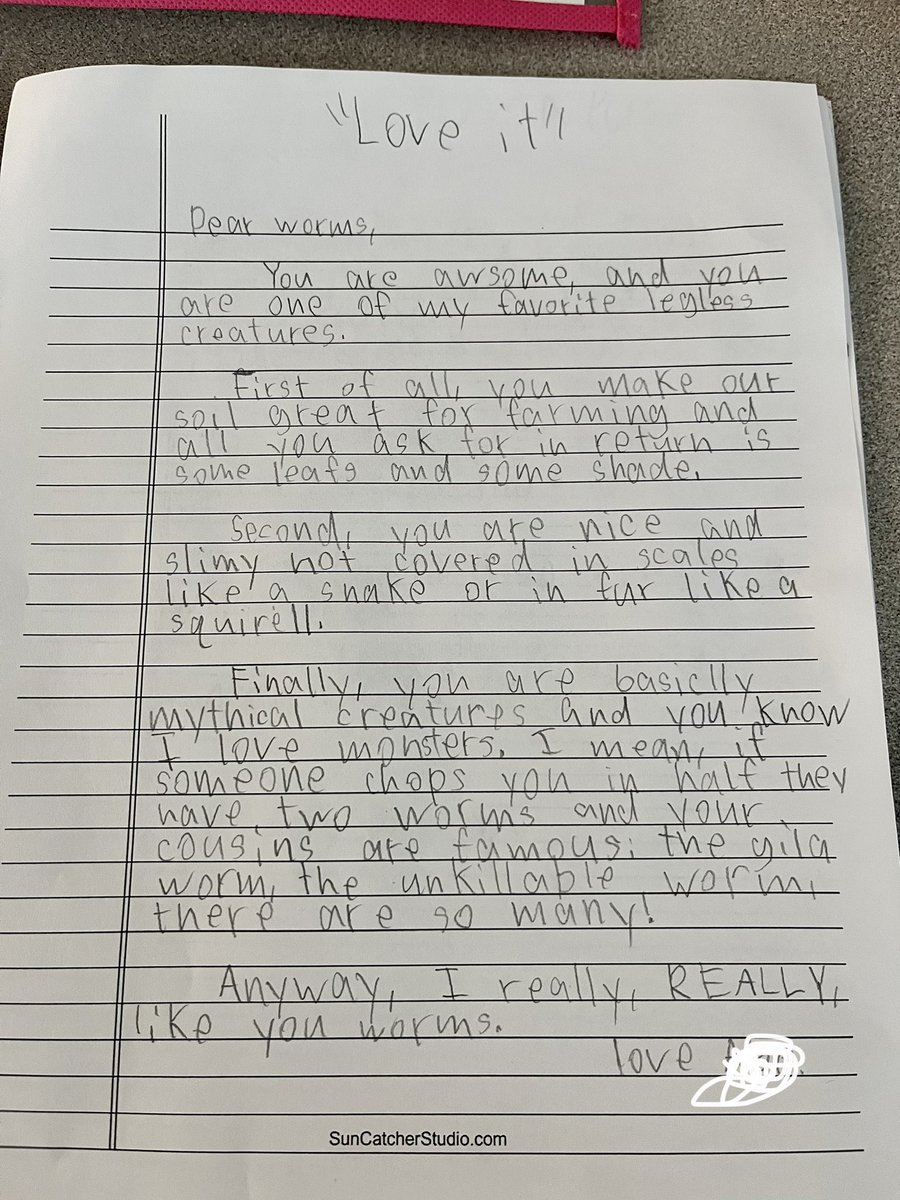 "Love it"
Dear worms,
You are awsome, and you
are one of my favorite legless
creatures.
First of all, you make our
soil great for farming and
all you ask for in return is
some leafs and some shade.
Second, you are nice and
slimy not covered in scales
like a snake or in fur like a
squirell.
Finally, you are basiclly
mythical creatures and you know
I love monsters. I mean, if
someone chops you in half they
have two worms and your
cousins are famous: the gila
worm, the unkillable worm,
there are so many!
Anyway, I really, REALLY,
like you worms.
love
SunCatcherStudio.com